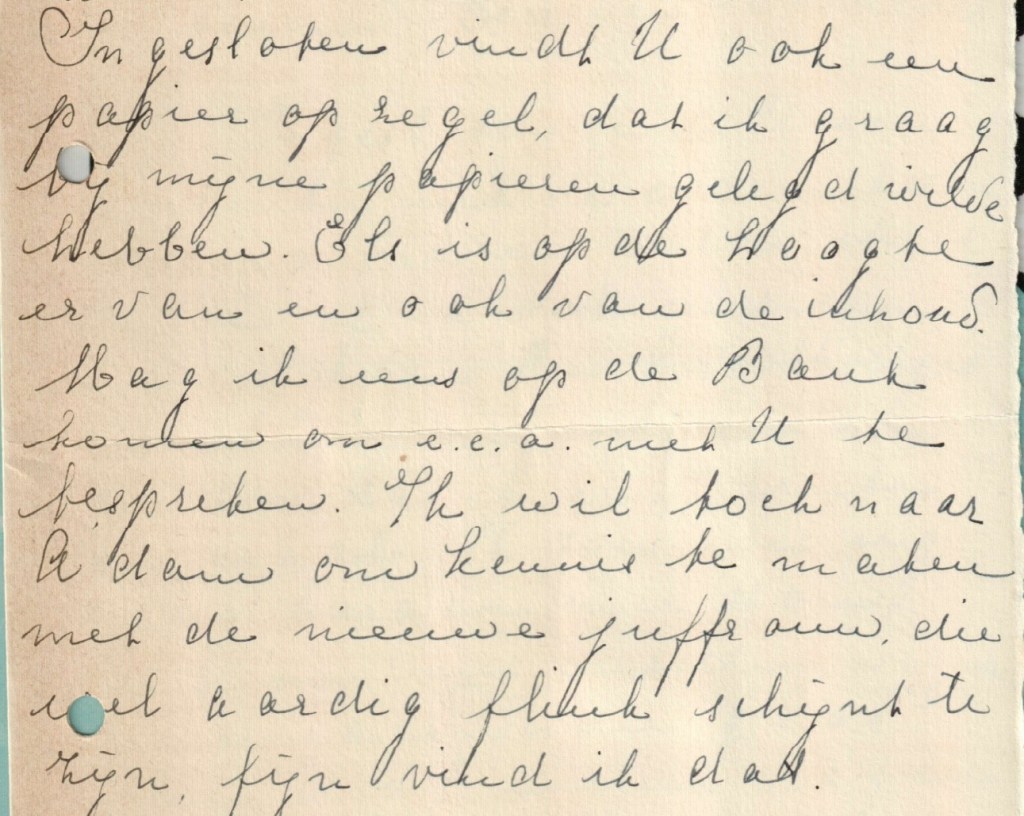 Ingesloten vindt U ook een
papier op zegel, dat ik graag
bij mijne papieren gelegd wilde
hebben. Els is op de hoogte
er van en ook van de inhoud.
Mag ik eens op de Bank
komen om e.e.a. met U te
bespreken. Ik wil toch naar
A'dam om kennis te maken
met de nieuwe juffrouw, die
wel aardig flink schijnt te
zijn, fijn vind ik dat.